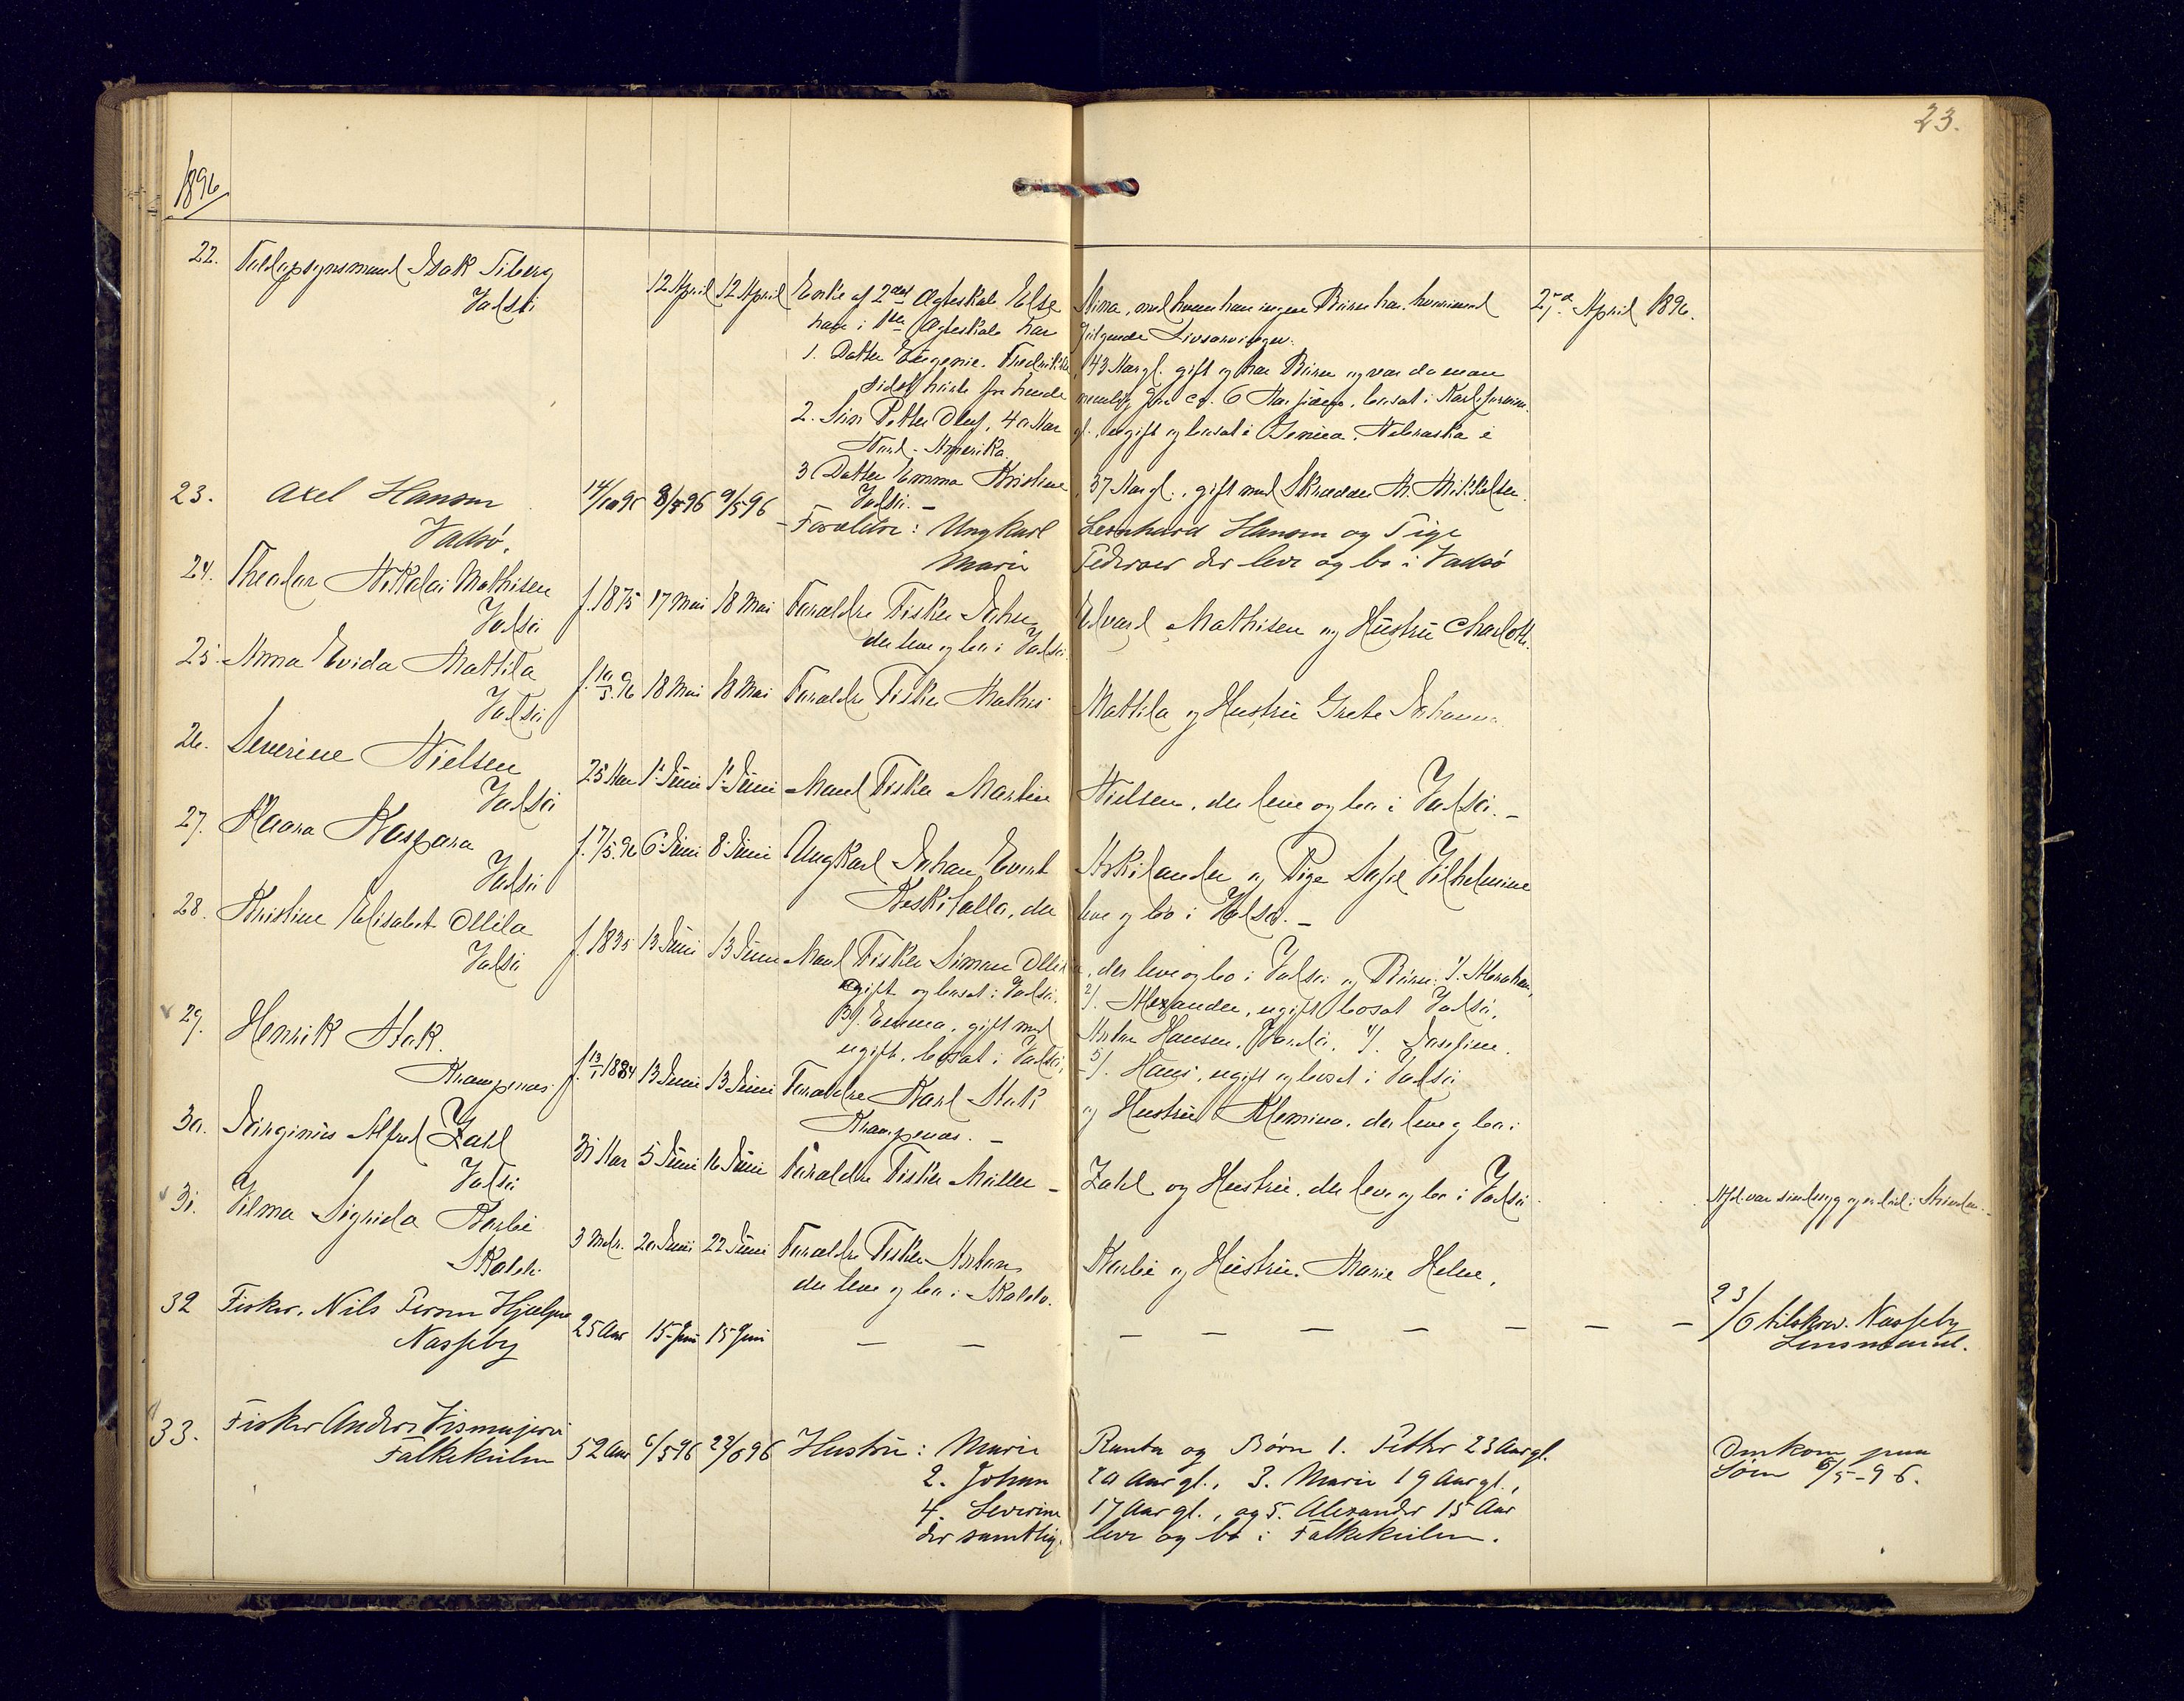 23.
1896
22. Toldopsynsmand Isak Siberg
Vadsö
12 April 12 April Enke af 2det Ægteskab Else Nina, med hvem han ingen Börn har, hvorimod
han i 1ste Ægteskab har følgende Livsarvinger:
1. Datter Eugenie Fredrikke, 43 Aar gl. gift og har Börn og var da man
sidst hørte fra hende nemlig for ca. 6 Aar siden, bosat i
2. Sön Petter Oluf, 40 Aar gl., ugift og bosat i Nebraska i
Nord-Amerika.
3. Datter Emma Kristine, 37 Aar gl., gift med Skrædder M. Mikkelsen
Vadsö. —
25de April 1896.
23. Axel Hansen
Vadsö.
14/10 95 8/5 96 9/5 96
— Forældre: Ungkarl Leonhard Hansen og Pige
Marie Pedersen der leve og bo i Vadsö
24. Theodor Nikolai Mathisen
Vadsö
f. 1875 17 Mai 18 Mai Forældre Fisker Johan Edvard Mathisen og Hustru Charlotte
der leve og bo i Vadsö.
25. Anna Evida Mattila
Vadsö
f. 10/5.96 18 Mai 18 Mai Forældre Fisker Mathis Mattila og Hustru Grete Johanna
26. Severine Nielsen
Vadsö
25 Aar 1 Juni 1 Juni Mand Fisker Martin Nielsen, der leve og bo i Vadsö. —
27. Kaspara
Vadsö
f. 7/5.96 6 Juni 8 Juni Ungkarl Johan Evert og Pige Sofie Vilhelmine
Keskitalla, der leve og bo i Vadsö. —
28. Kristine Elisabet Ollila
Vadsö
f. 1835 13 Juni 13 Juni Mand Fisker Simon Ollila, der leve og bo i Vadsö og Börn: 1/. Abraham,
ugift og bosat i Vadsö. 2/. Alexander, ugift bosat Vadsö,
3/. Emma, gift med Anton Hansen, Vardö. 4/. Josefine,
ugift, bosat i Vadsö, 5/. Hans, ugift og bosat i Vadsö
29. Henrik Stak.
Krampenæs
f. 13/1 1884 13 Juni 13 Juni Forældre Karl Stak og Hustru Klemina, der leve og bo i
Krampenæs. —
30. Alfred Zahl
Vadsö
31 Aar 5 Juni 16 Juni Forældre Fisker Möller Zahl og Hustru, der leve og bo i Vadsö.
Afd. var sindssyg og er död i
31. Vilma Sigrida Karbö
Skaldö
3 Mdr. 20 Juni 22 Juni Forældre Fisker Anton Karbö og Hustru Marie Helene,
der leve og bo i Skaldö.
32 Fisker, Nils Persen Hjælpe
Nasseby
25 Aar 15 Juni 15 Juni — — — — — — — — —
23/6 tilskrev. Nasseby
Lensmand.
33. Fisker Anders Vismajervi
Falkekeilen
52 Aar 6/5 96 23/6 96 Hustru: Marie Ranta og Børn 1. Petter 23 Aar gl.
2. Johan 20 Aar gl., 3. Marie 19 Aar gl.,
4. Severine 17 Aar gl., og 5. Alexander 15 Aar
der samtlige leve og bo i Falkekeilen.
Omkom paa
Søen 6/5-96.